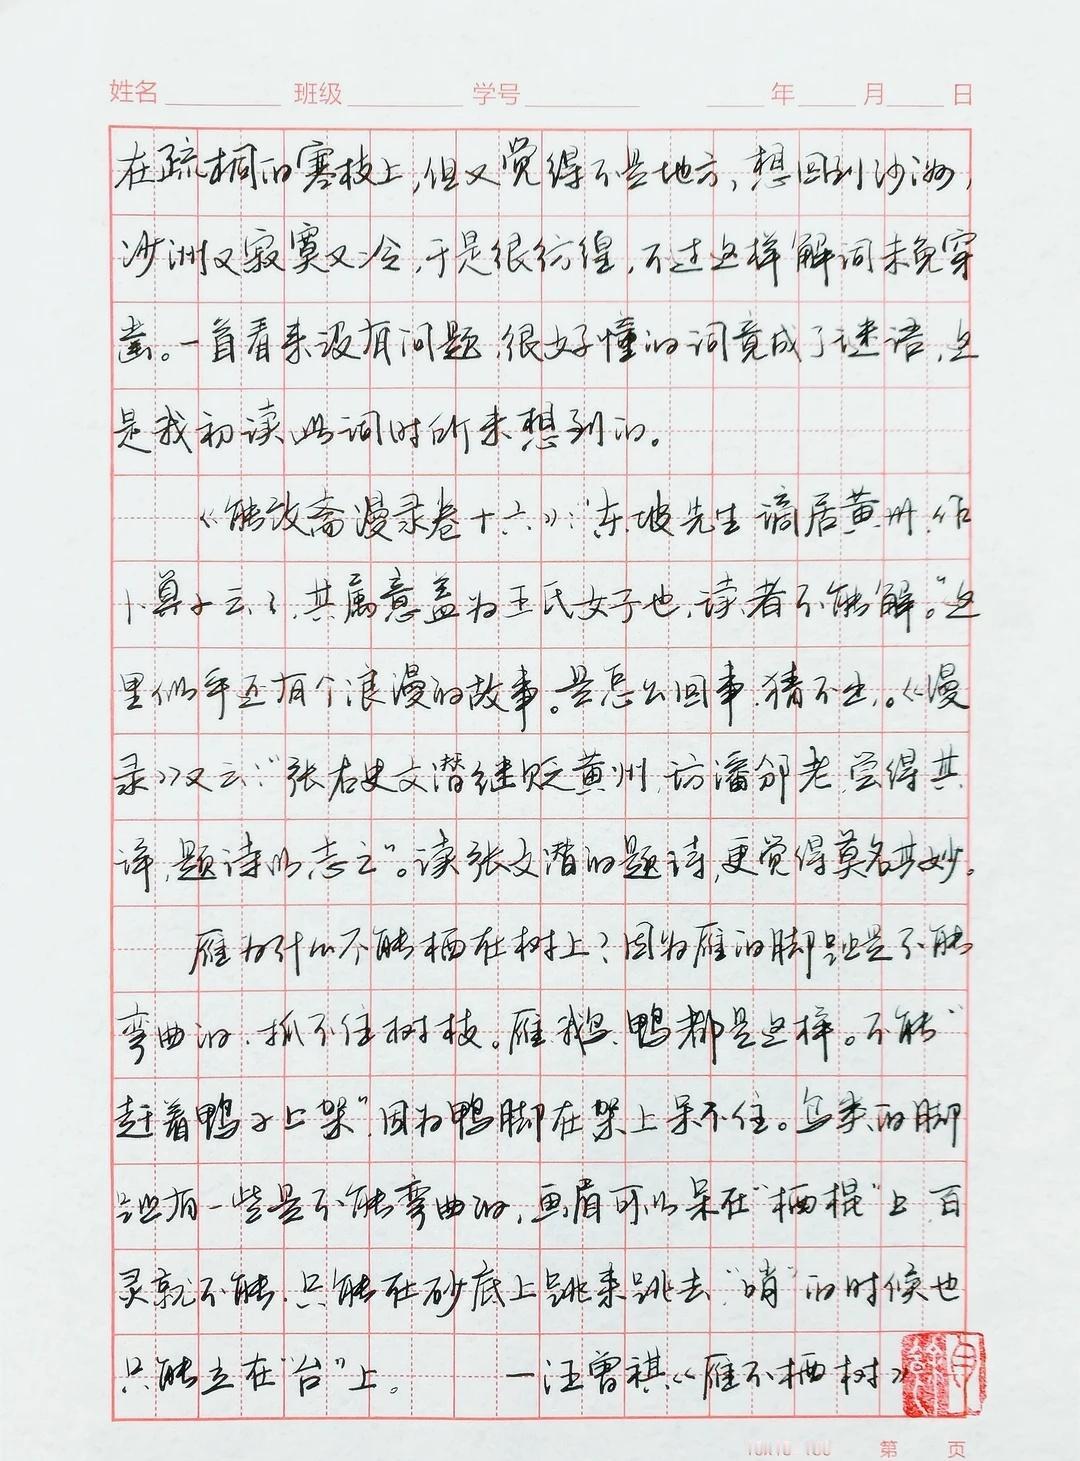 姓名 班级 学号 年 月 日
在疏桐的寒枝上,但又觉得不是地方,想回到沙洲,
沙洲又寂寞又冷,于是很彷徨,不过这样解词未免穿
凿。一首看来没有问题,很好懂的词竟成了谜语,这
是我初读此词时所未想到的。
《能改斋漫录卷十六》:“东坡先生谪居黄州,作
卜算子云云,其属意盖为王氏女子也,读者不能解。”这
里似乎还有个浪漫的故事。是怎么回事,猜不出。《漫
录》又云:“张右史文潜继贬黄州,访潘邠老,尝得其
详,题诗以志之”。读张文潜的题诗,更觉得莫名其妙。
雁为什么不能栖在树上?因为雁的脚趾是不能
弯曲的,抓不住树枝。雁、鹅、鸭都是这样。不能“
赶着鸭子上架”,因为鸭脚在架上呆不住。鸟类的脚
趾有一些是不能弯曲的,画眉可以呆在“栖棍”上,百
灵就不能,只能在砂底上跳来跳去,“哨”的时候也
只能立在“台”上。 —汪曾祺《雁不栖树》
第 页